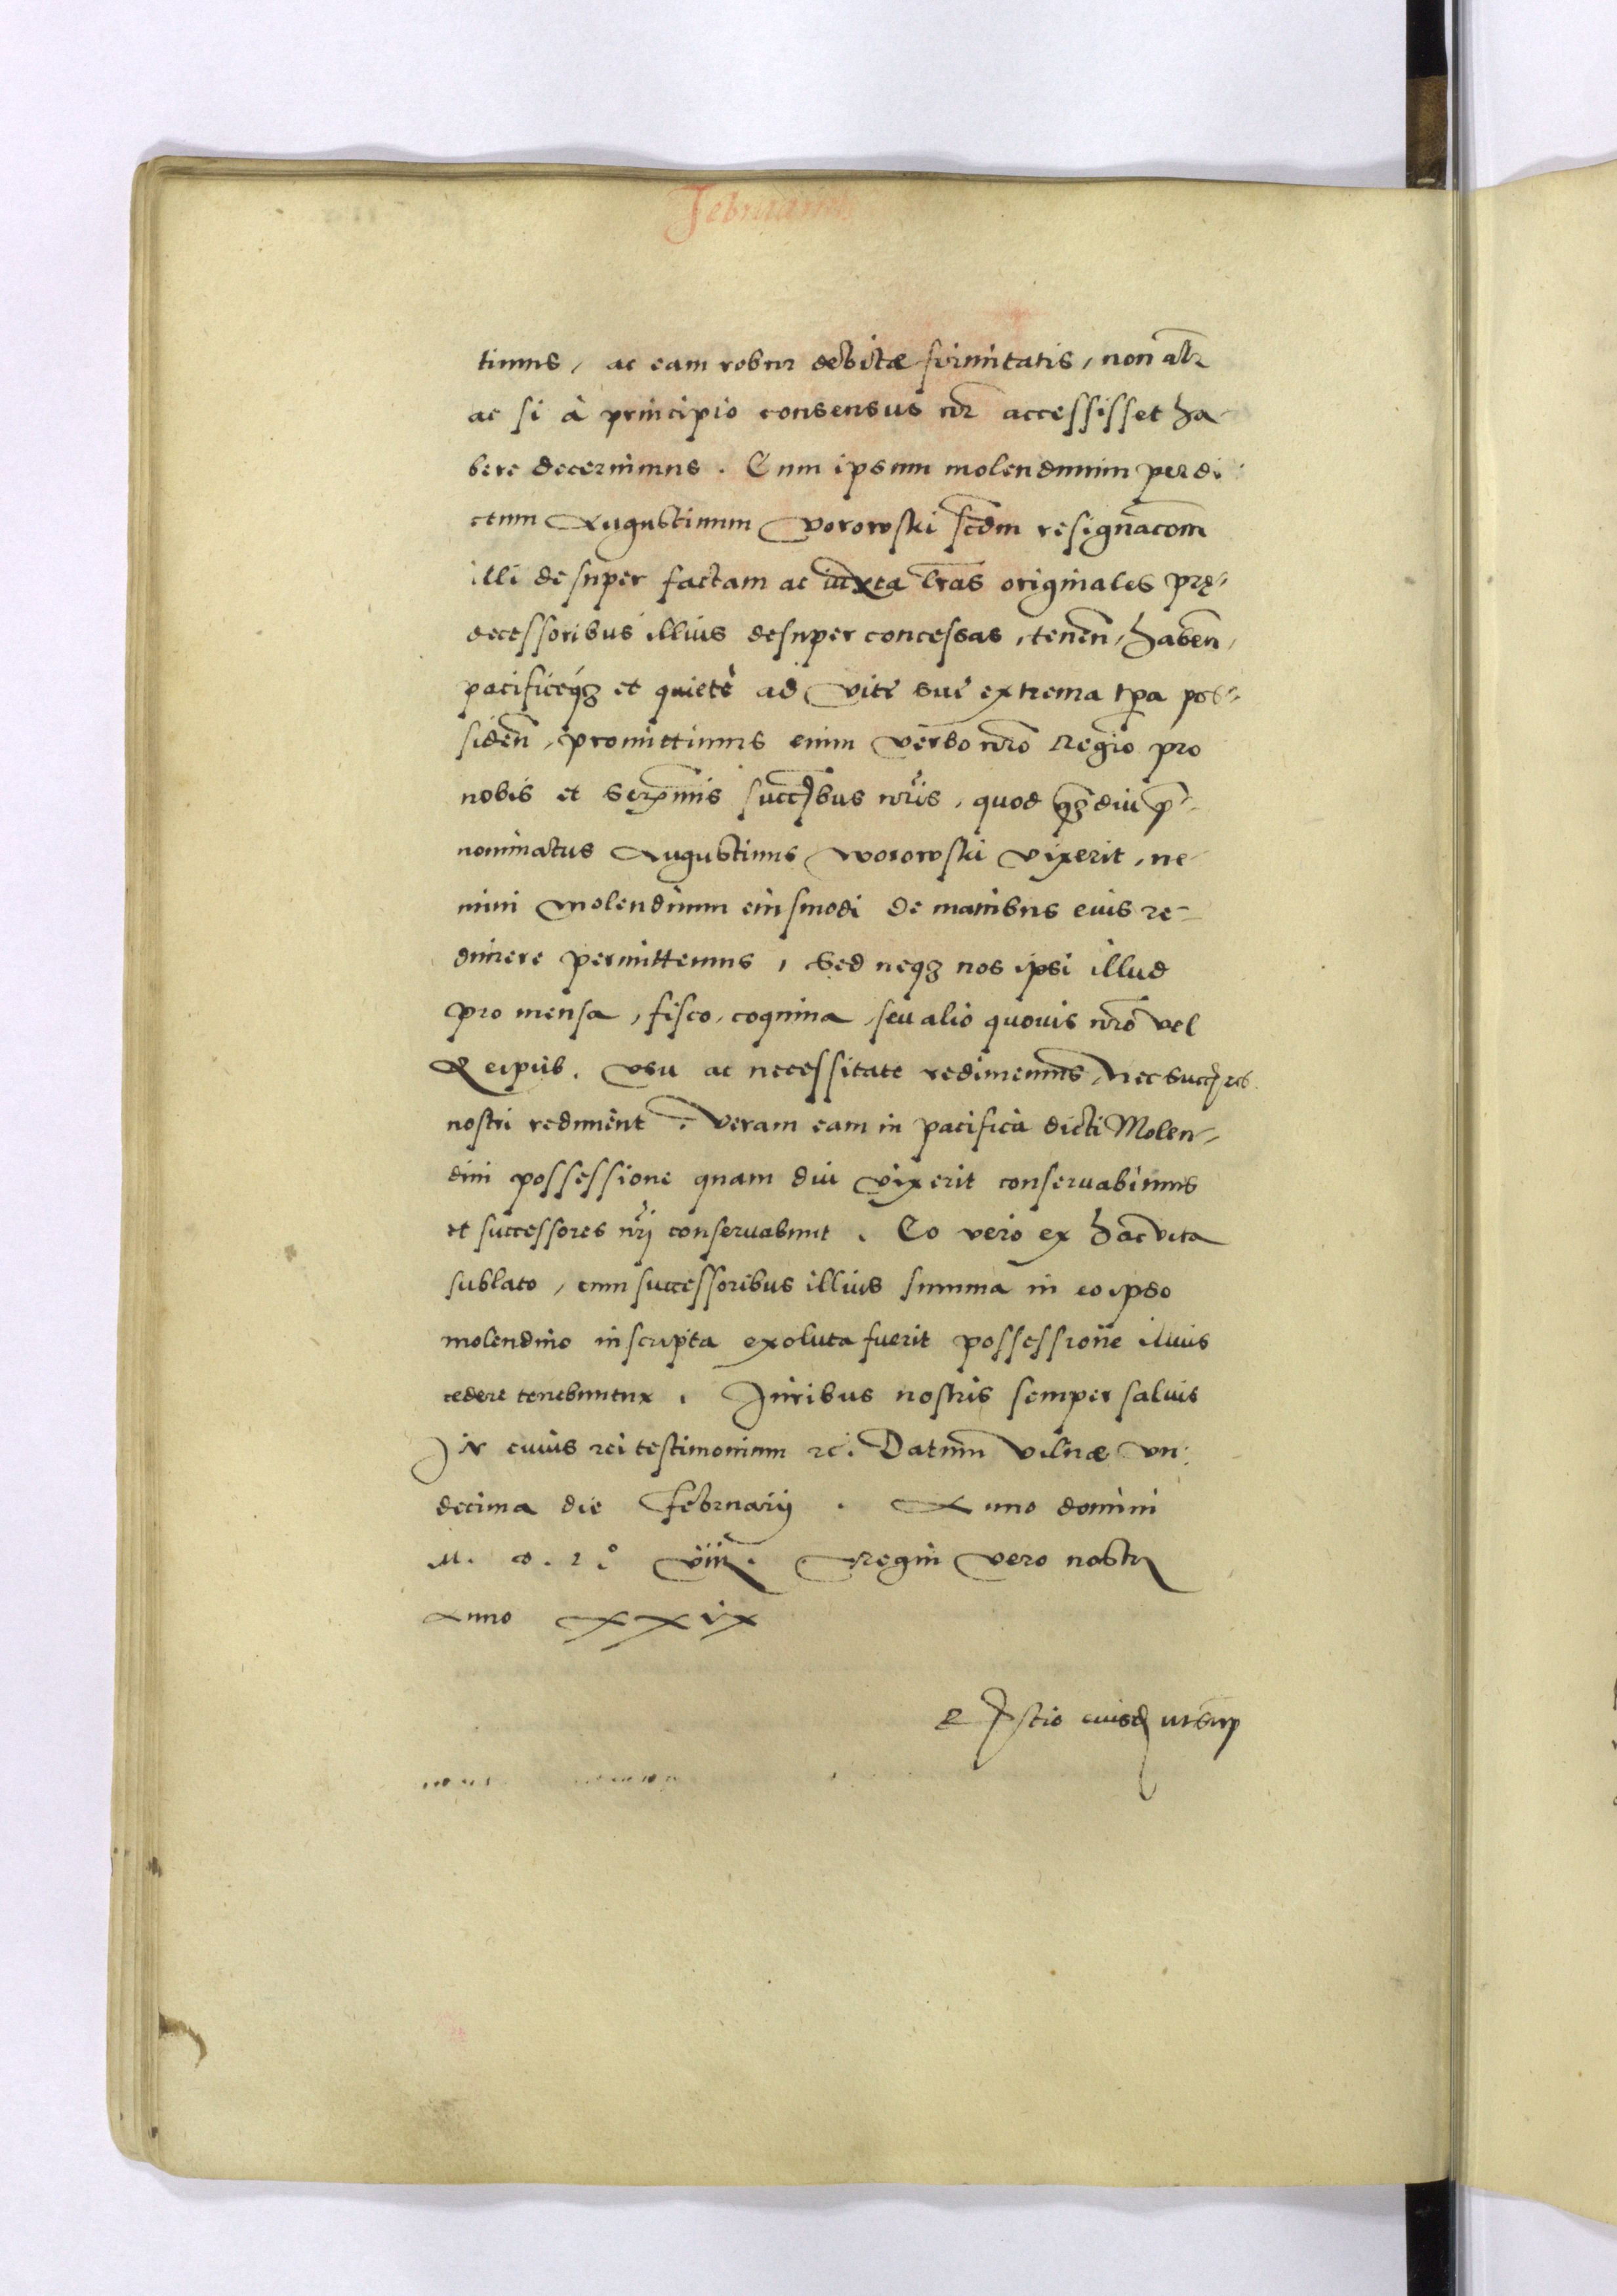 Februarius
timus, ac eam robur debitæ firmitatis, non alr̃
ac si à principio consensus nr̃ accessisset ha-
bere decernimus. Cum ipsum molendinum per di-
ctum Augustinum Vorowski scdm̃ resignac̃om
illi desuper factam ac iuxta lr̃as originales prę-
decessoribus illius desuper concessas, tenen̄, haben̄,
pacificeq̃ et quietè ad vite sue extrema tp̃a pos-
siden̄, promittimus enim verbo nr̃o Regio pro
nobis et Serx̃mis succ̃bus nr̃is, quod q̃diu p̃-
nominatus Augustinus Worowski vixerit, ne-
mini molendinum eiusmodi de manibus eius re-
dimere permittemus, Sed neq̃ nos ipsi illud
pro mensa, fisco, coquina, seu alio quovis nr̃o vel
Reipub. usu ac necessitate redimemus, Nec succ̃res
nostri rediment. Verum eum in pacifica dicti Molen-
dini possessione quam diu vixerit conservabimus
et successores nr̃j conservabunt. Eo vero ex hac vita
sublato, cum successoribus illius summa in eo ipso
molendino inscripta exoluta fuerit possessione illius
cedere tenebuntur. Juribus nostris semper salvis
In cuius rei testimonium rc̃. Datum Vilnæ un-
decima die Februarij. Anno domini
M. D. L° viij. Regni vero nostri
Anno XXIX
eiusd̃ ut sup̃